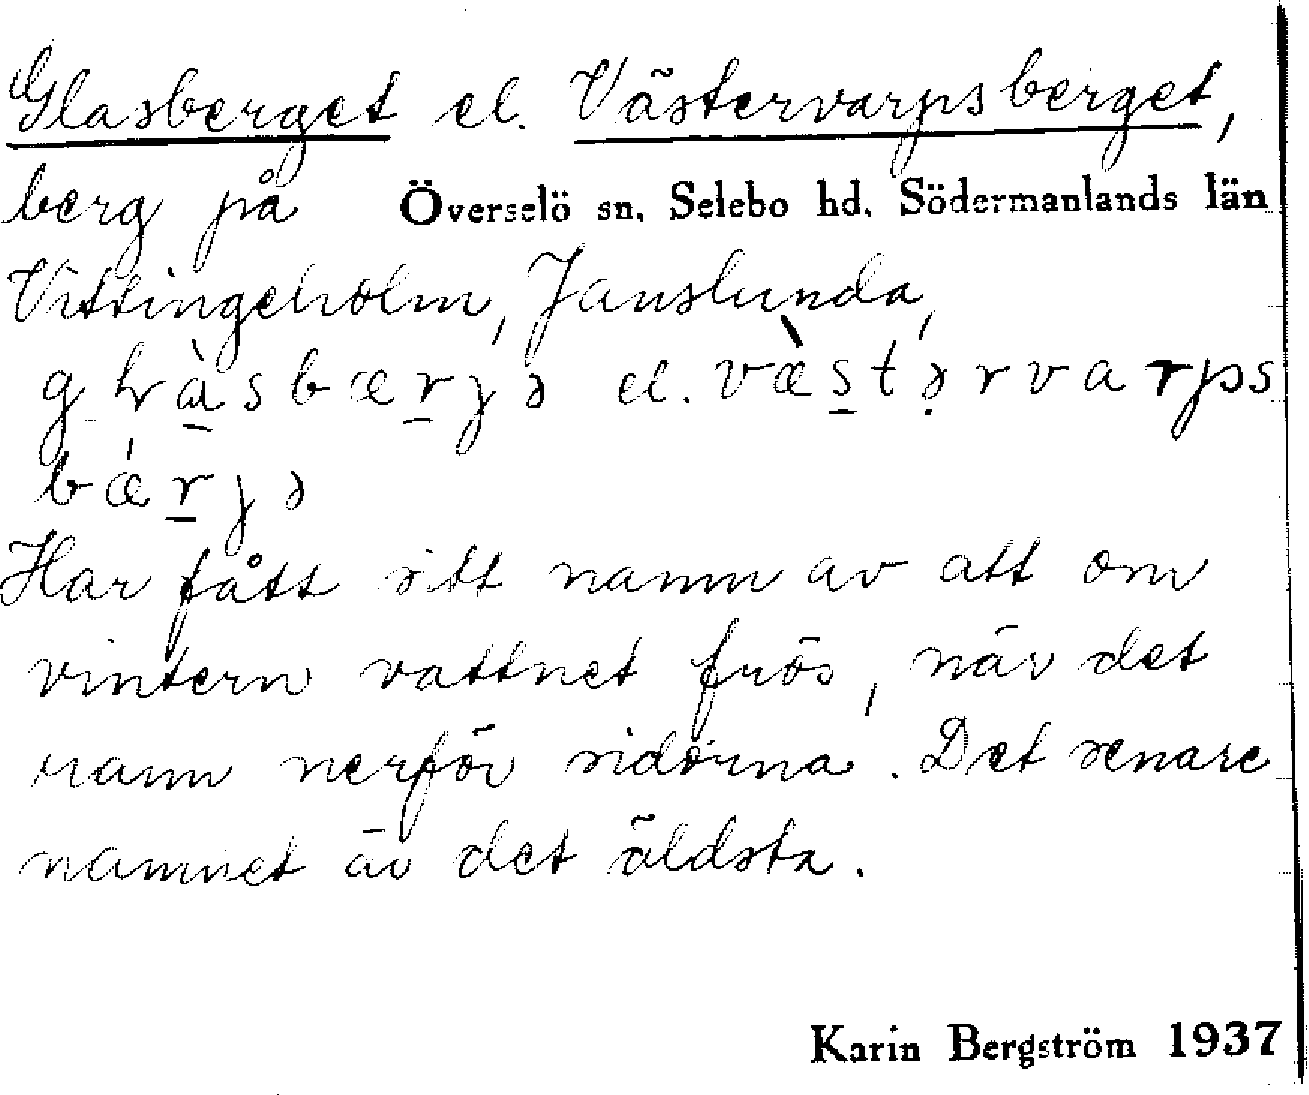 Glasberget el. Västervarpsberget,
berg på Överselö sn. Selebo hd. Södermanlands län
Vittingeholm, Janslunda,
Har fått sitt namn av att om
vintern vattnet frös, när det
rann nerför sidorna. Det senare
namnet är det äldsta.
Karin Bergström 1937